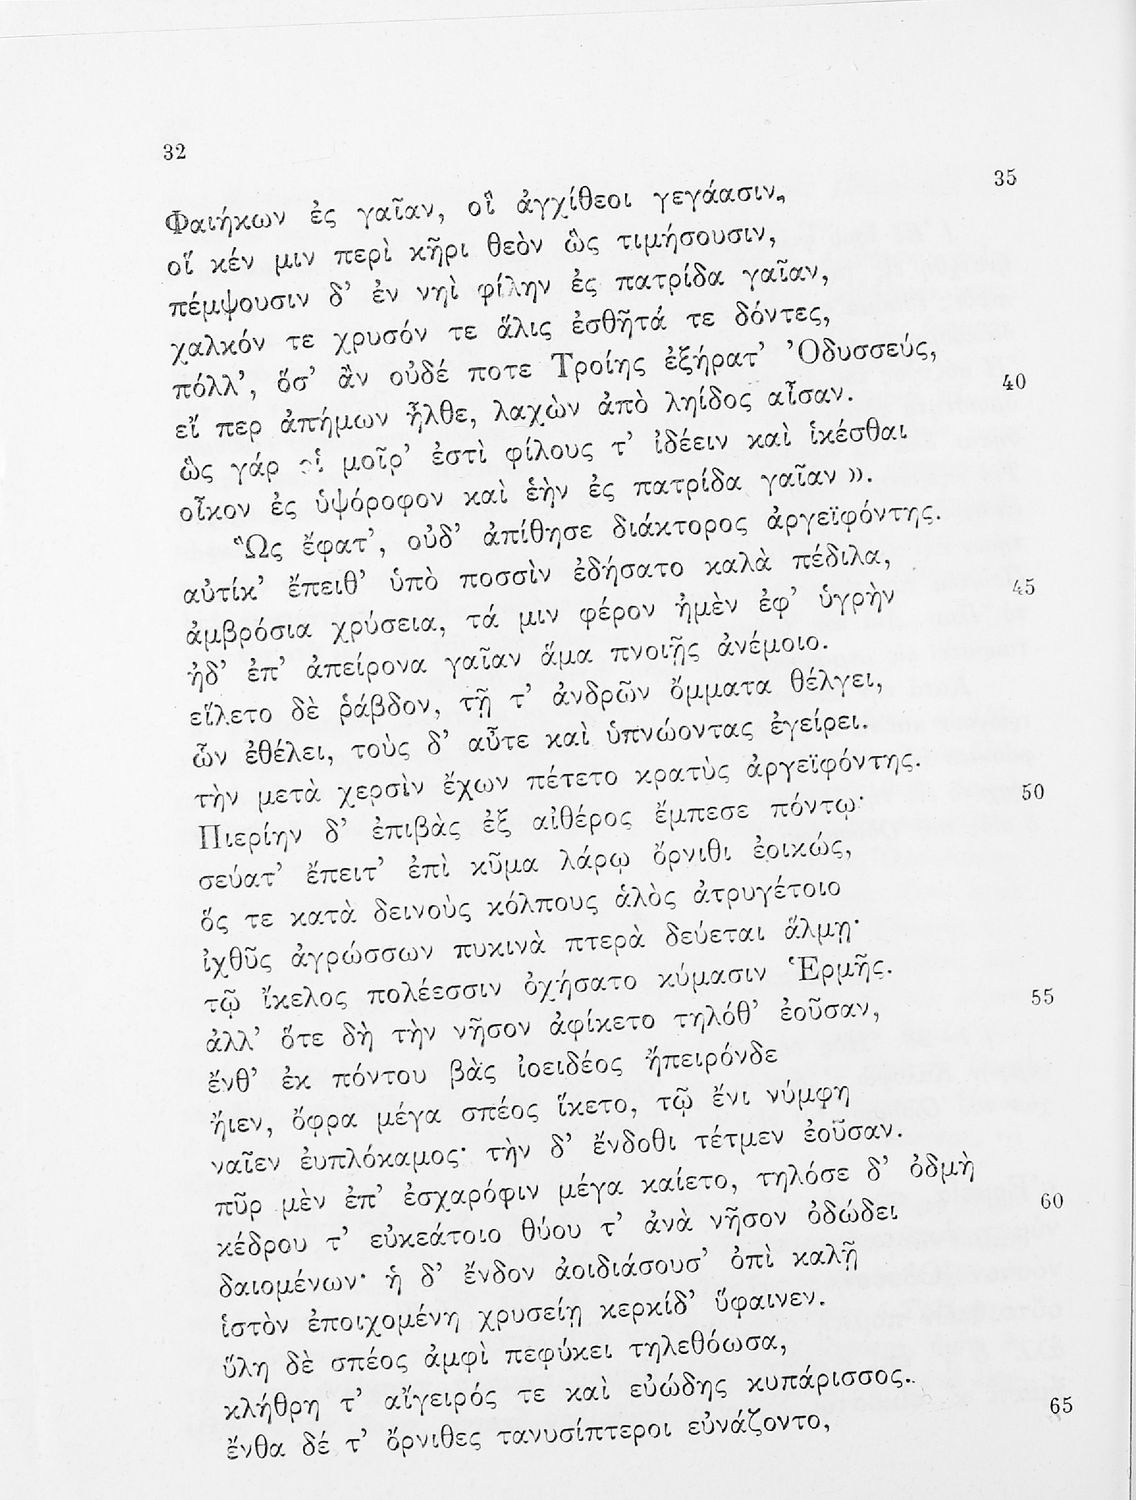 32
Φαιήκων ἐς γαῖαν, οἳ ἀγχίθεοι γεγάασιν, 35
οἵ κέν μιν περὶ κῆρι θεὸν ὣς τιμήσουσιν,
πέμψουσιν δ’ ἐν νηῒ φίλην ἐς πατρίδα γαῖαν,
χαλκόν τε χρυσόν τε ἅλις ἐσθῆτά τε δόντες,
πόλλ’, ὅσ’ ἂν οὐδέ ποτε Τροίης ἐξήρατ’ Ὀδυσσεύς,
εἴ περ ἀπήμων ἦλθε, λαχὼν ἀπὸ ληίδος αἶσαν. 40
ὣς γάρ οἱ μοῖρ’ ἐστὶ φίλους τ’ ἰδέειν καὶ ἱκέσθαι
οἶκον ἐς ὑψόροφον καὶ ἑὴν ἐς πατρίδα γαῖαν ».
Ὣς ἔφατ’, οὐδ’ ἀπίθησε διάκτορος ἀργεϊφόντης.
αὐτίκ’ ἔπειθ’ ὑπὸ ποσσὶν ἐδήσατο καλὰ πέδιλα,
ἀμβρόσια χρύσεια, τά μιν φέρον ἠμὲν ἐφ’ ὑγρὴν 45
ἠδ’ ἐπ’ ἀπείρονα γαῖαν ἅμα πνοιῇς ἀνέμοιο.
εἵλετο δὲ ῥάβδον, τῇ τ’ ἀνδρῶν ὄμματα θέλγει,
ὧν ἐθέλει, τοὺς δ’ αὖτε καὶ ὑπνώοντας ἐγείρει.
τὴν μετὰ χερσὶν ἔχων πέτετο κρατὺς ἀργεϊφόντης.
Πιερίην δ’ ἐπιβὰς ἐξ αἰθέρος ἔμπεσε πόντῳ· 50
σεύατ’ ἔπειτ’ ἐπὶ κῦμα λάρῳ ὄρνιθι ἐοικώς,
ὅς τε κατὰ δεινοὺς κόλπους ἁλὸς ἀτρυγέτοιο
ἰχθῦς ἀγρώσσων πυκινὰ πτερὰ δεύεται ἅλμῃ·
τῷ ἴκελος πολέεσσιν ὀχήσατο κύμασιν Ἑρμῆς.
ἀλλ’ ὅτε δὴ τὴν νῆσον ἀφίκετο τηλόθ’ ἐοῦσαν, 55
ἔνθ’ ἐκ πόντου βὰς ἰοειδέος ἤπειρόνδε
ἤιεν, ὄφρα μέγα σπέος ἵκετο, τῷ ἔνι νύμφη
ναῖεν ἐυπλόκαμος· τὴν δ’ ἔνδοθι τέτμεν ἐοῦσαν.
πῦρ μὲν ἐπ’ ἐσχαρόφιν μέγα καίετο, τηλόσε δ’ ὀδμὴ
κέδρου τ’ εὐκεάτοιο θύου τ’ ἀνὰ νῆσον ὀδώδει 60
δαιομένων· ἡ δ’ ἔνδον ἀοιδιάσουσ’ ὀπὶ καλῇ
ἱστὸν ἐποιχομένη χρυσείῃ κερκίδ’ ὕφαινεν.
ὕλη δὲ σπέος ἀμφὶ πεφύκει τηλεθόωσα,
κλήθρη τ’ αἴγειρός τε καὶ εὐώδης κυπάρισσος.
ἔνθα δέ τ’ ὄρνιθες τανυσίπτεροι εὐνάζοντο, 65